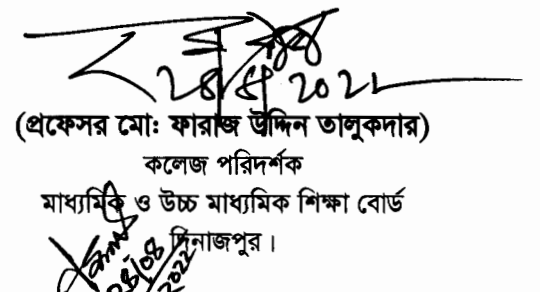 (প্রফেসর মো: ফারাজ উদ্দিন তালুকদার)
কলেজ পরিদর্শক
মাধ্যমিক ও উচ্চ মাধ্যমিক শিক্ষা বোর্ড
দিনাজপুর।
28/08
2022